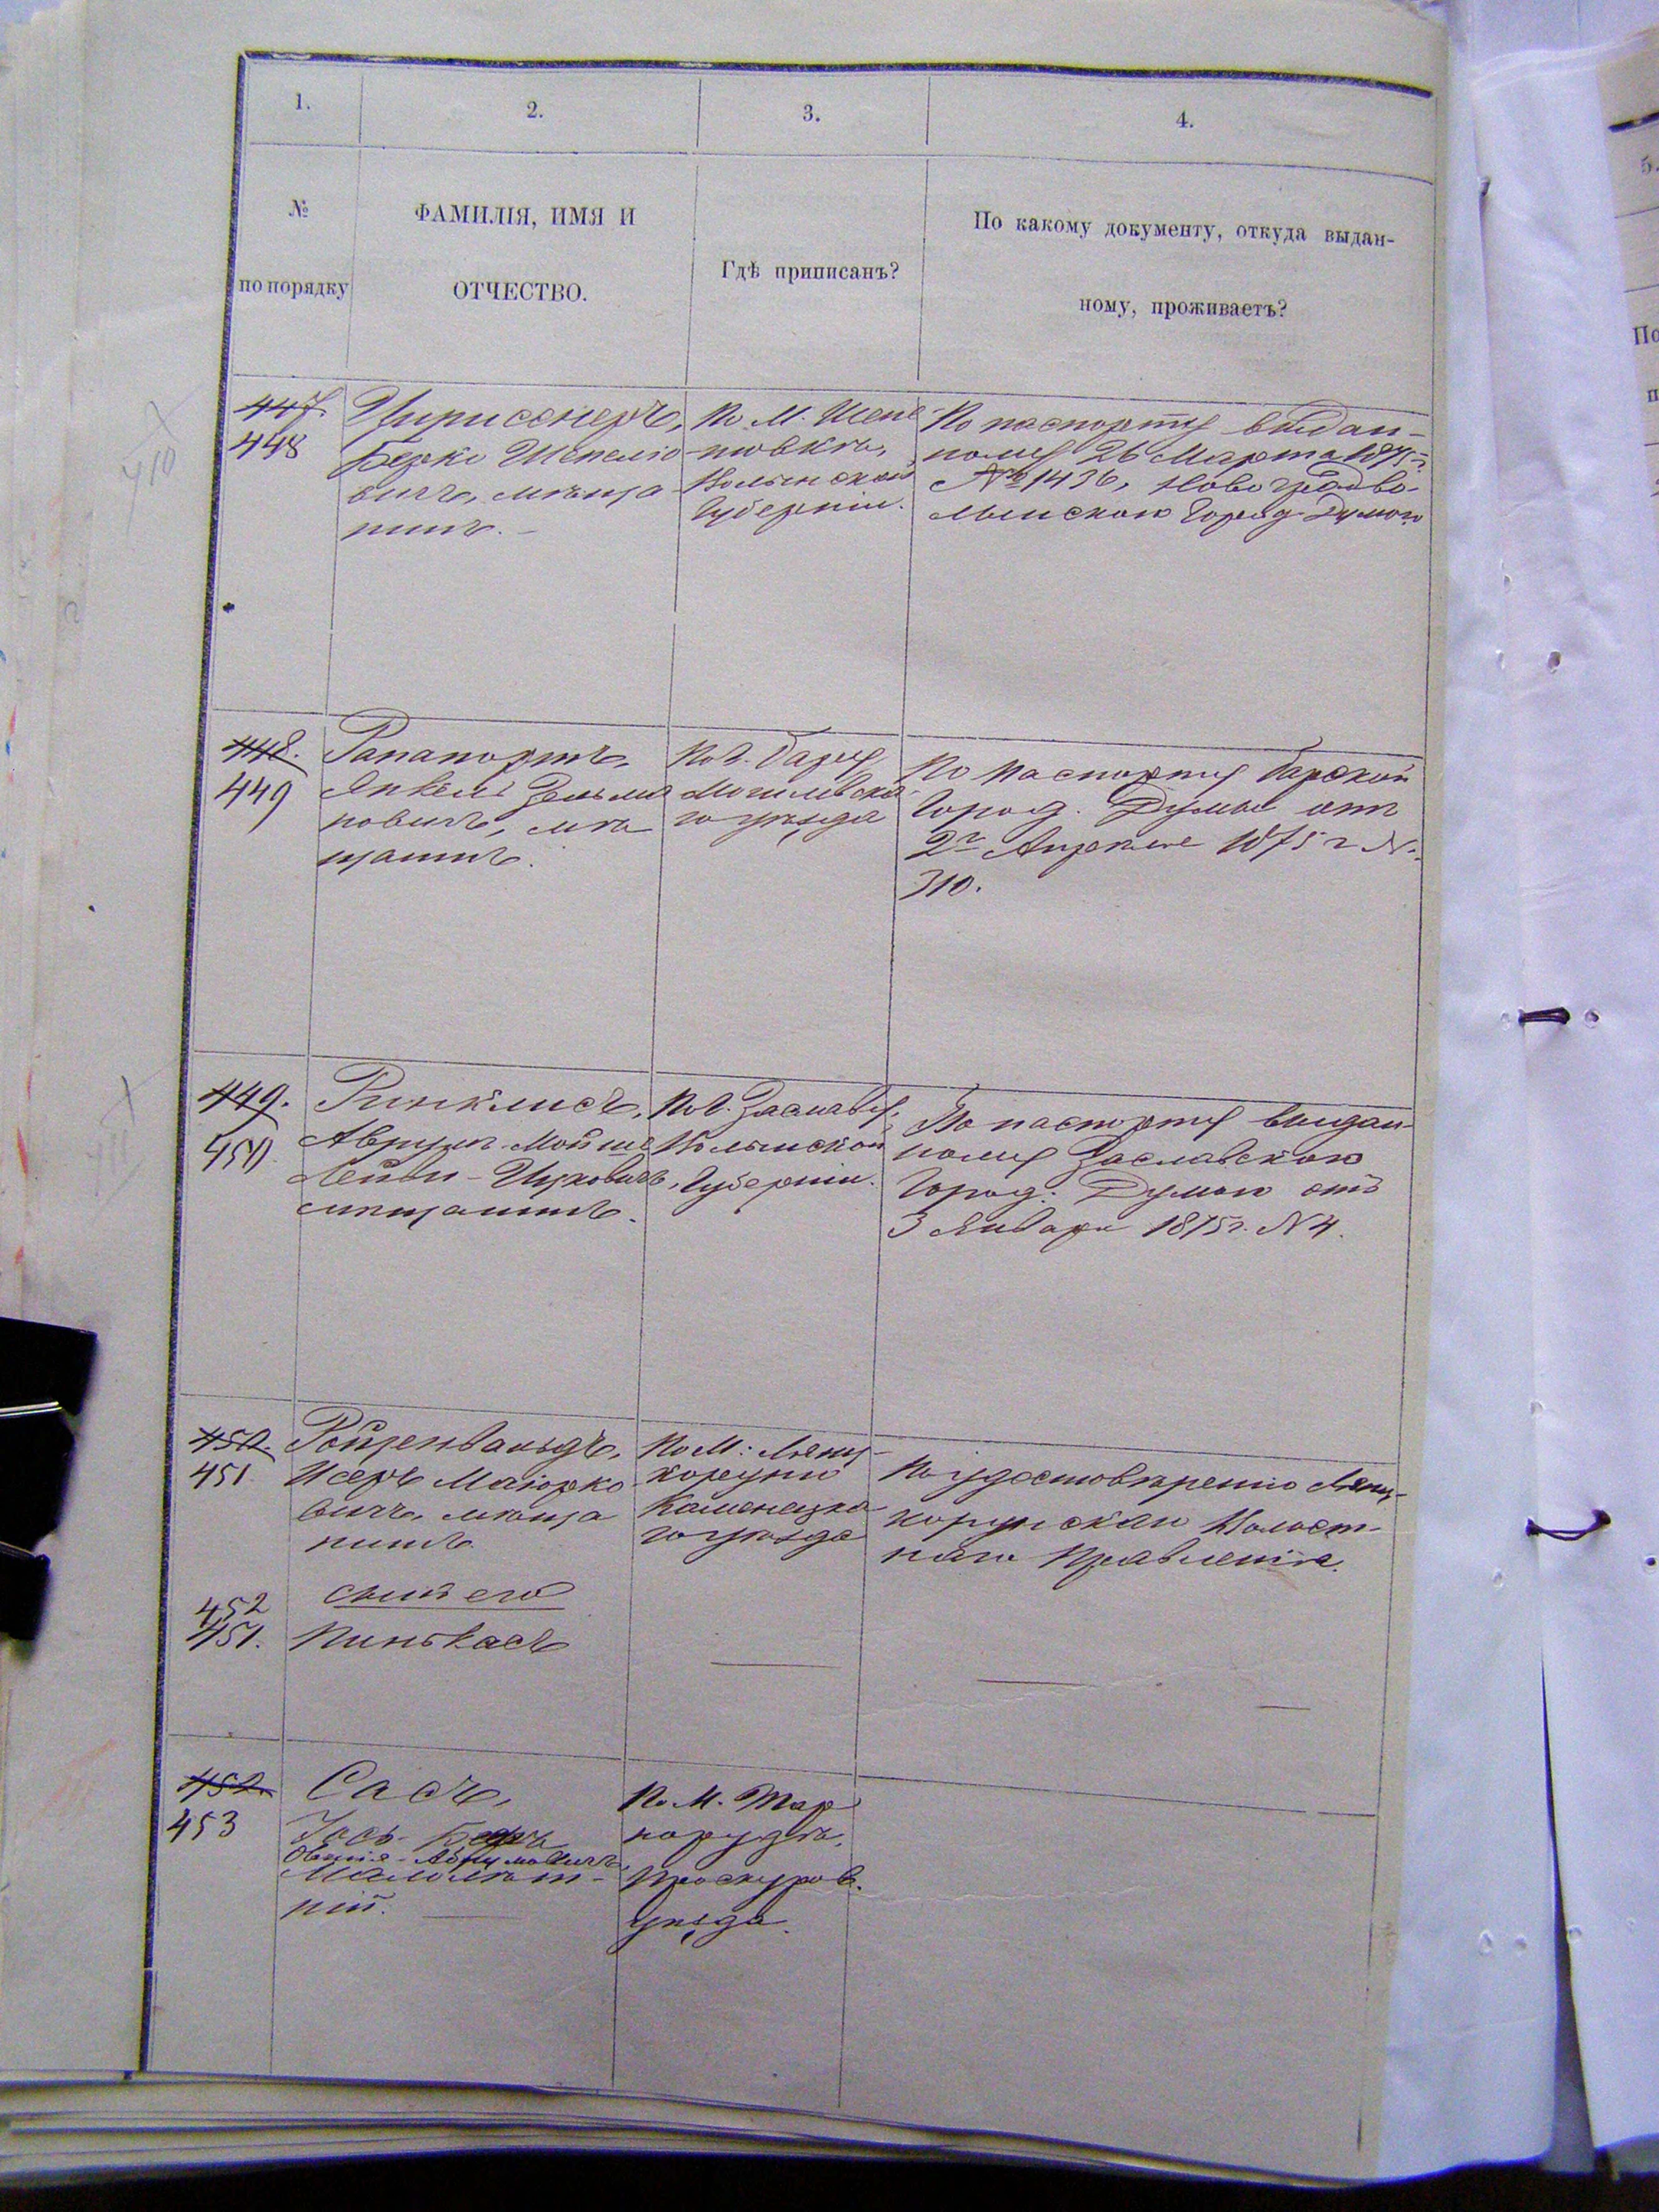 1.
2.
3.
4.
№
по порядку
ФАМИЛІЯ, ИМЯ И
ОТЧЕСТВО.
Гдѣ приписанъ?
По какому документу, откуда выдан-
ному, проживаетъ?
447.
448
Берко Шепсліо
вичъ, мѣща
нинъ.
По М. Шепе
товкѣ,
Волынской
Губерніи.
По паспорту выдан-
ному 26 Марта 1875 г.
№ 1436, Новоградво-
лынскою Город. Думою
448.
449
Рапапортъ,
Янкель Зельма
новичъ, мѣ
щанинъ.
По г. Бару
Могилевска
го уѣзда
По паспорту Барской
Город. Думы отъ
2го Апрѣля 1875 г №.
310.
449.
450
Ринклисъ,
Аврумъ-Мойше
Лейби-Ицковичъ,
мѣщанинъ.
По г. Заславу,
Волынской
Губерніи.
По паспорту выдан-
ному Заславскою
Город: Думою отъ
3 Января 1875 г. № 4.
450.
451
Ройзенвальдъ,
Исеръ Маіорко
вичъ, мѣща
нинъ.
По М: Лянц-
корунѣ
Каменецка
го уѣзда
По удостовѣренію Лянц-
корунскаго Волост-
наго Правленія.
сынъ его
452
451.
Пинькасъ
452.
453
Сасъ,
Іось-
Малолѣт-
ній.
По М. Тар
норудѣ,
Проскуров.
уѣзда.
5.
410